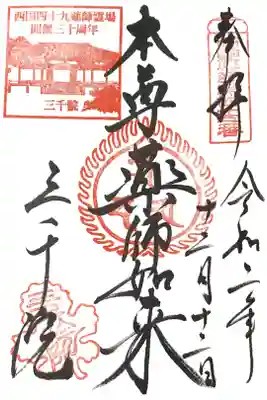 奉拝
令和二年
十二月十二日
本尊薬師如来
三千院
西国四十九薬師霊場
開創三十周年
三千院